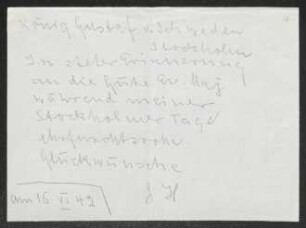 König Gustaf v. Schweden
Stockholm
In steter Erinnerung
an die Güte Ew. Maj
während meiner
Stockholmer Tage
ehrfurchtsvolle
Glückwünsche
am 16 VI 42